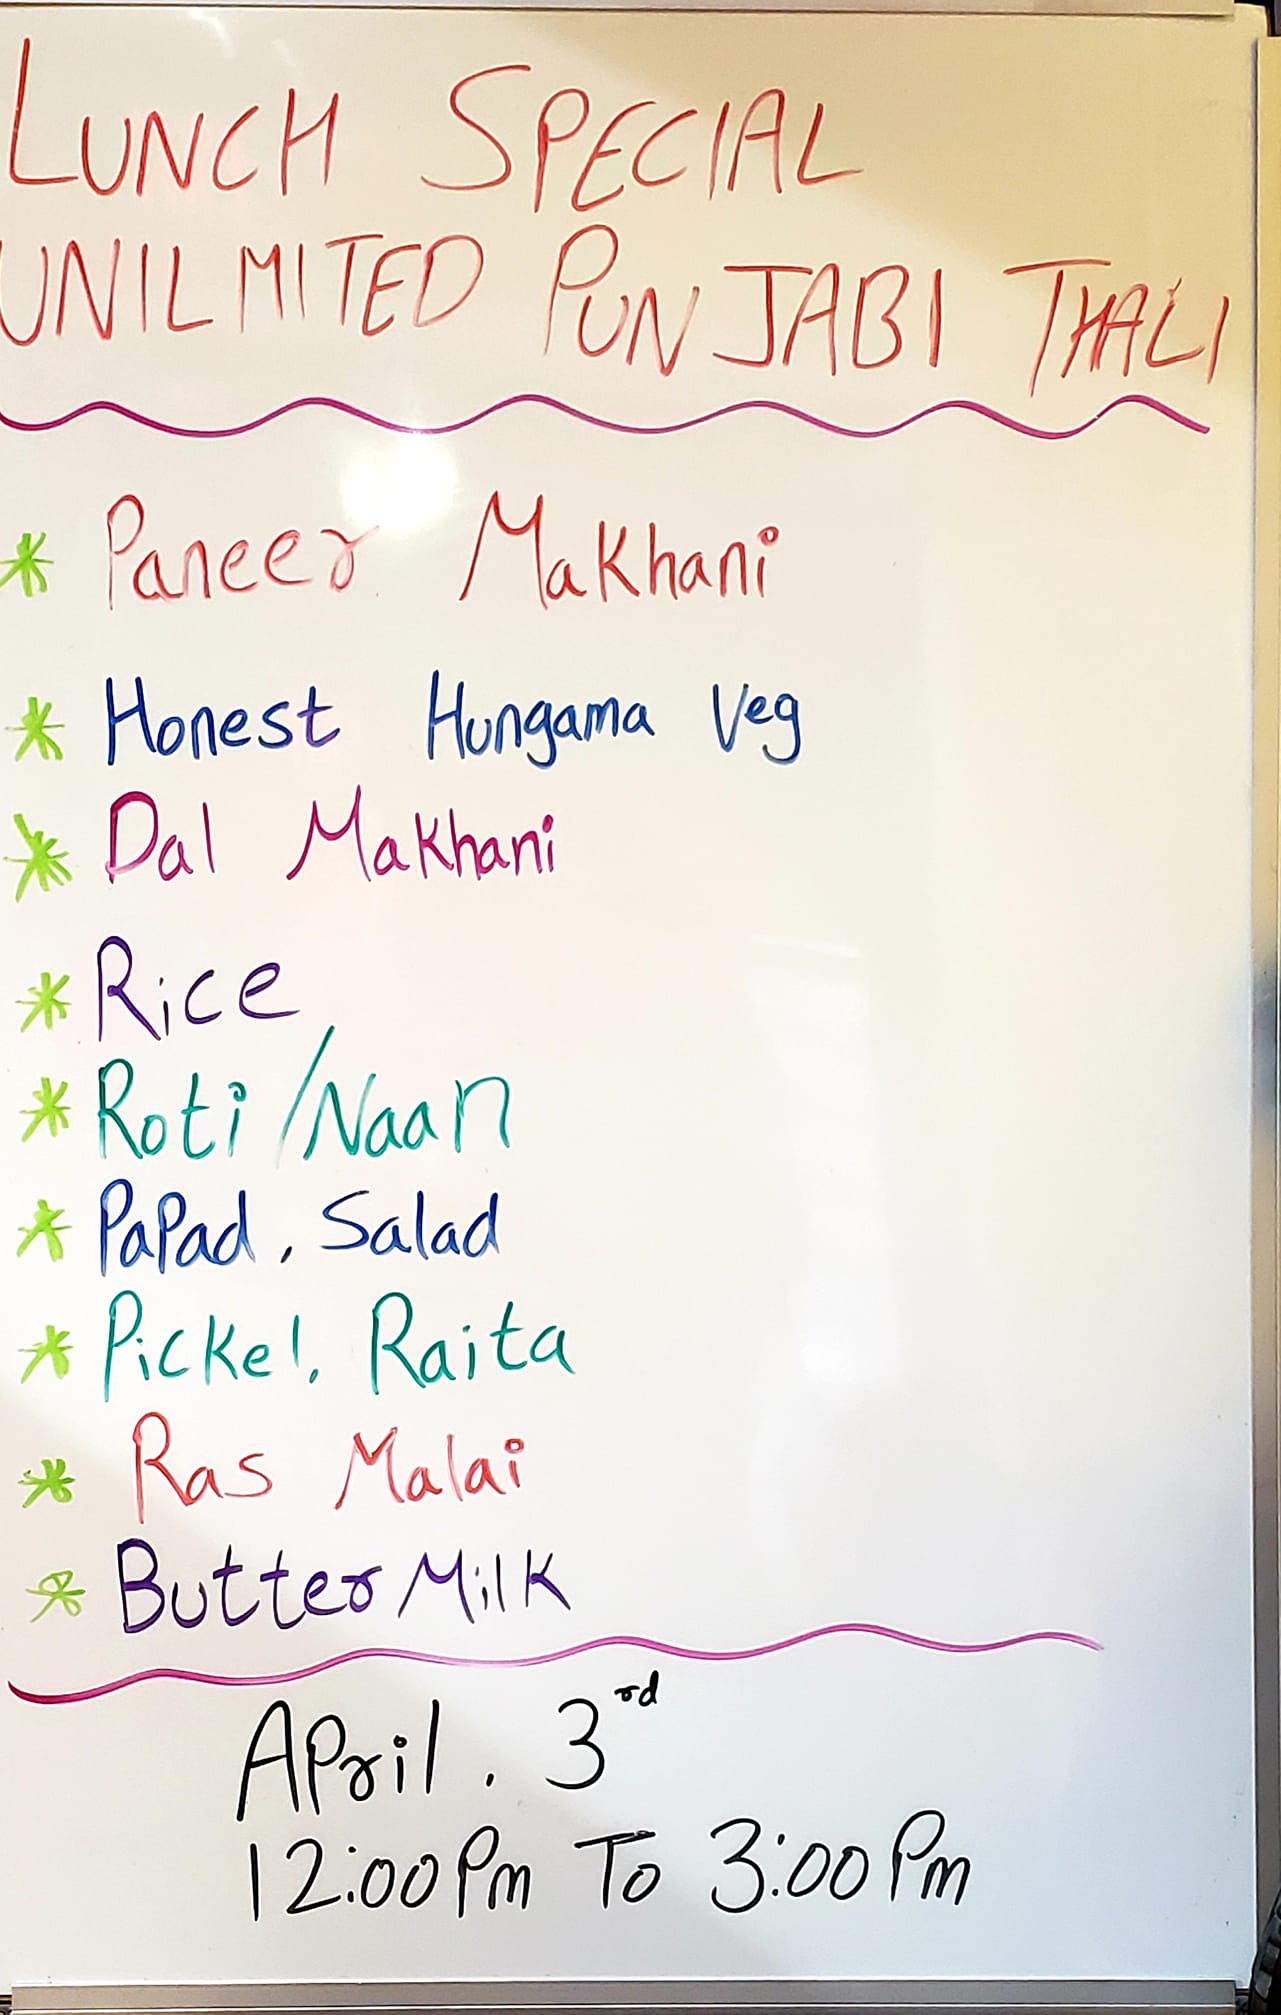 LUNCH SPECIAL
UNILMITED PUNJABI THALI
* Paneer Makhani
* Honest Hungama Veg
* Dal Makhani
* Rice
* Roti/Naan
* PaPad, Salad
* Pickel, Raita
* Ras Malai
* Butter Milk
April. 3rd
12:00 Pm To 3:00 Pm